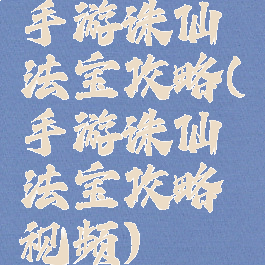 手游诛仙
法宝攻略(
手游诛仙
法宝攻略
视频)